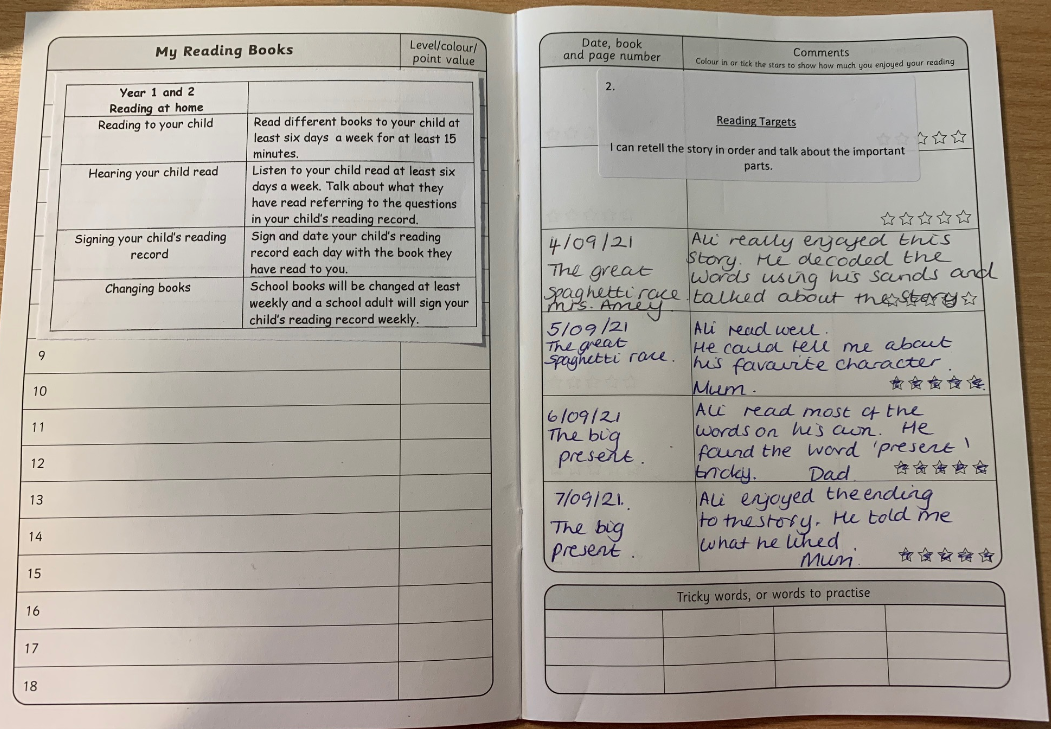 My Reading Books
Level/colour/
point value
Year 1 and 2
Reading at home
Reading to your child
Read different books to your child at
least six days a week for at least 15
minutes.
Hearing your child read
Listen to your child read at least six
days a week. Talk about what they
have read referring to the questions
in your child's reading record.
Signing your child's reading
record
Sign and date your child's reading
record each day with the book they
have read to you.
Changing books
School books will be changed at least
weekly and a school adult will sign your
child's reading record weekly.
9
10
11
12
13
14
15
16
17
18
Date, book
and page number
Comments
Colour in or tick the stars to show how much you enjoyed your reading
2.
Reading Targets
I can retell the story in order and talk about the important
parts.
4/09/21
The great
spaghetti race
Mrs. Amey
Ali really enjoyed this
story. He decoded the
words using his sands and
talked about the story
5/09/21
The great
spaghetti race.
Ali read well.
He could tell me about
his favourite character.
Mum.
6/09/21
The big
present.
Ali read most of the
words on his own. He
found the word 'present'
tricky. Dad
7/09/21.
The big
present.
Ali enjoyed the ending
to the story. He told me
what he liked.
Mum.
Tricky words, or words to practise